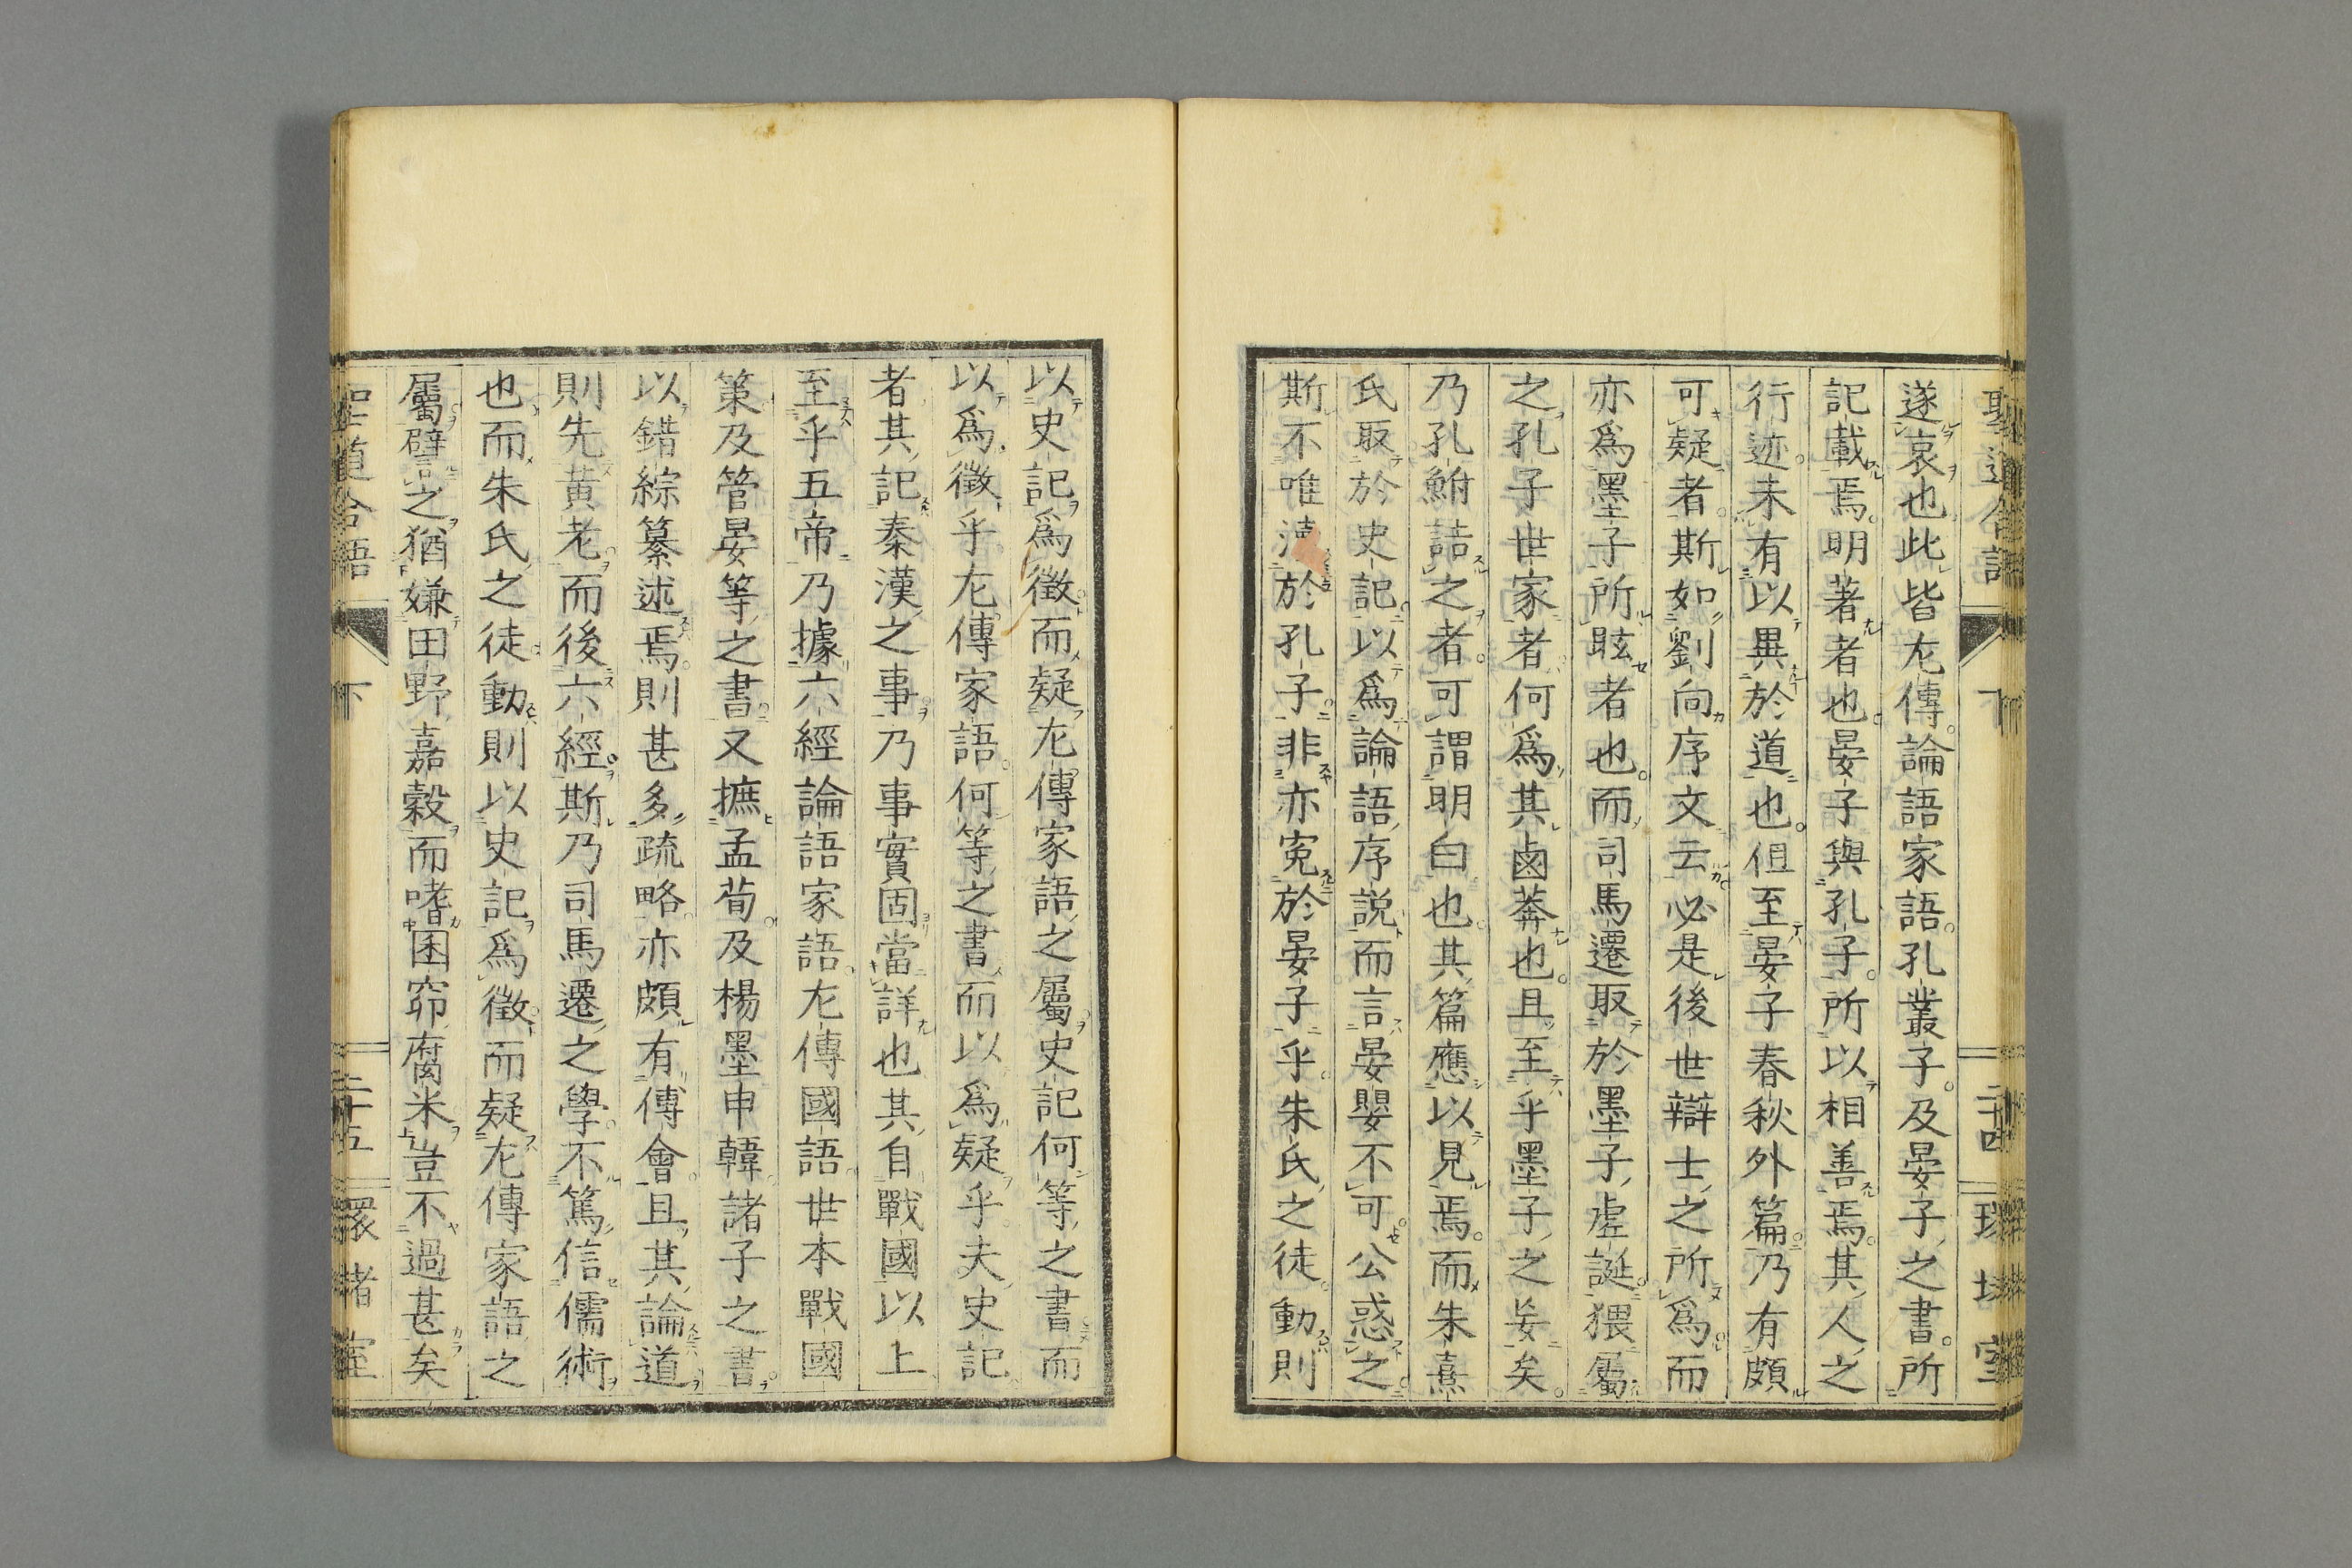 聖道合語 下 二十四 環堵室
遂哀也此皆左傳論語家語孔叢子及晏子之書所
記載焉明著者也晏子與孔子所以相善焉其人之
行迹未有以異於道也但至晏子春秋外篇乃有頗
可疑者斯如劉向序文云必是後世辯士之所爲而
亦爲墨子所眩者也而司馬遷取於墨子虛誕猥屬
之孔子世家者何爲其鹵莽也且至乎墨子之妄矣
乃孔鮒詰之者可謂明白也其篇應以見焉而朱熹
氏取於史記以爲論語序説而言晏嬰不可公惑之
斯不唯於孔子非亦寃於晏子乎朱氏之徒動則
以史記爲徵而疑左傳家語之屬史記何等之書而
以爲徵乎左傳家語何等之書而以爲疑乎夫史記
者其記秦漢之事乃事實固當詳也其自戰國以上
至乎五帝乃據六經論語家語左傳國語世本戰國
策及管晏等之書又摭孟荀及楊墨申韓諸子之書
以錯綜纂述焉則甚多疏略亦頗有傅會且其論道
則先黃老而後六經斯乃司馬遷之學不篤信儒術
也而朱氏之徒動則以史記爲徵而疑左傳家語之
屬譬之猶嫌田野嘉穀而嗜囷窌腐米豈不過甚矣
聖道合語 下 二十五 環堵室